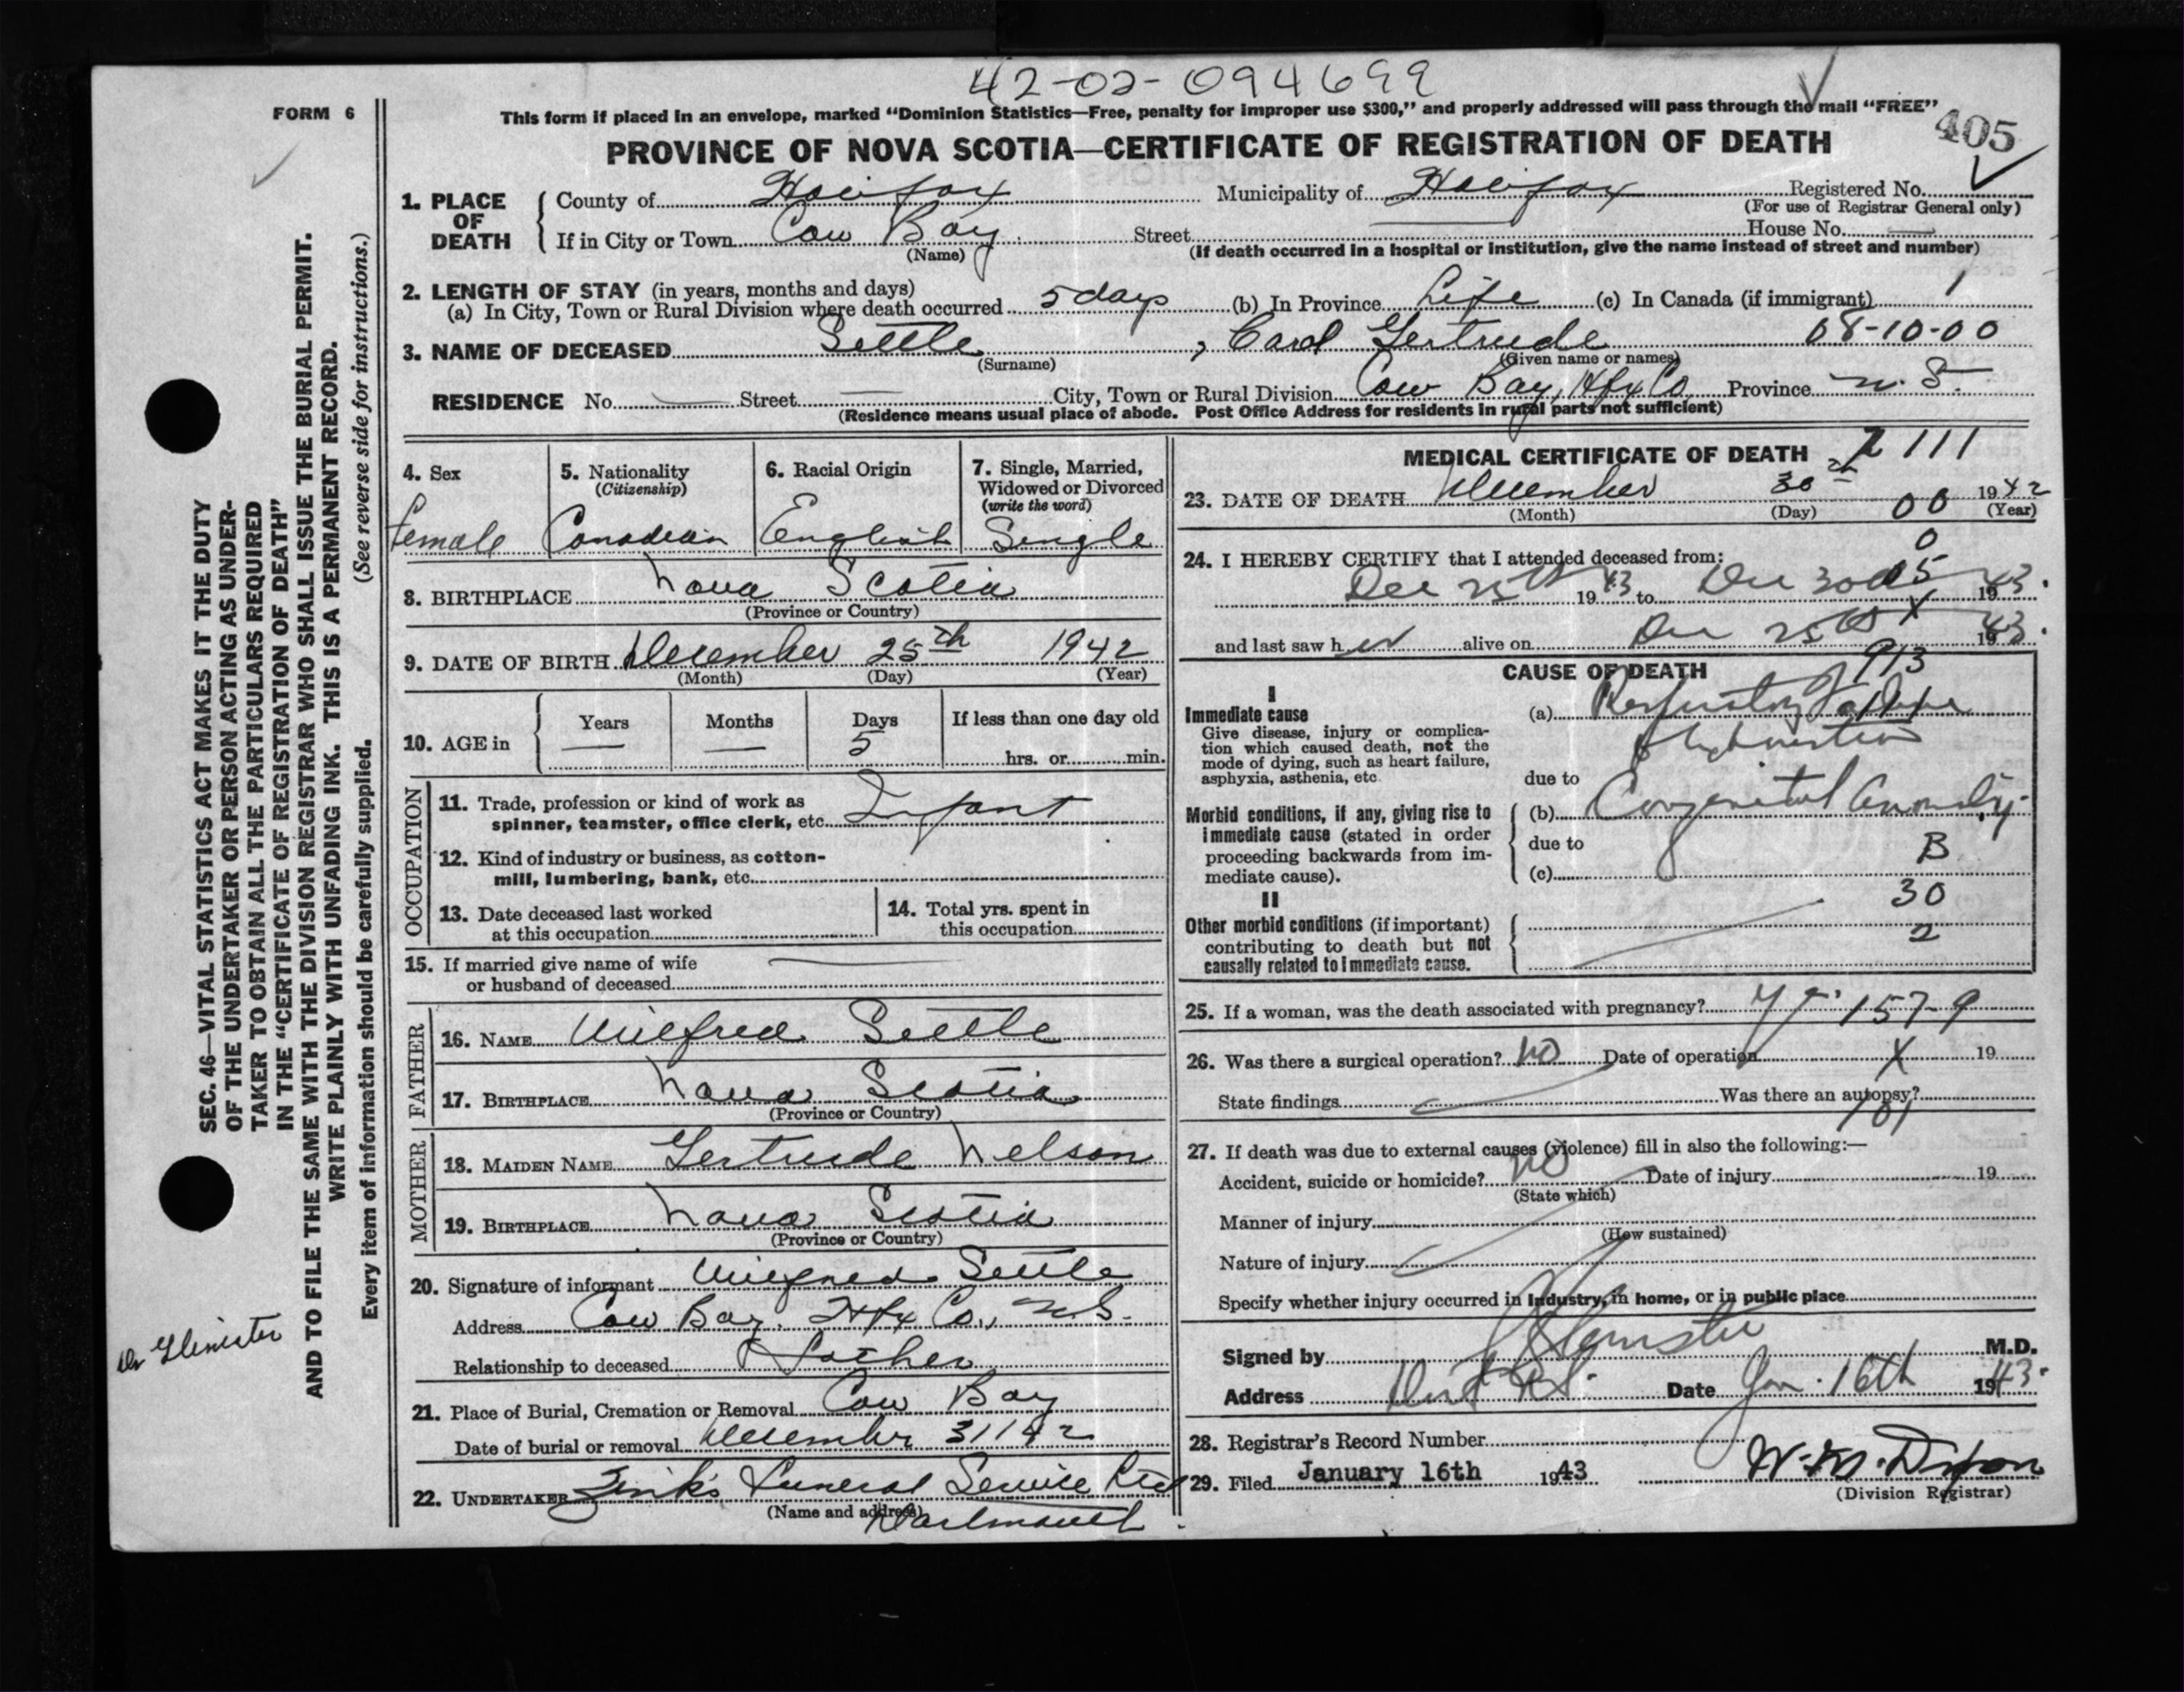 42-02-094699
FORM 6
This form if placed in an envelope, marked “Dominion Statistics—Free, penalty for improper use $300,” and properly addressed will pass through the mail “FREE”
405
PROVINCE OF NOVA SCOTIA—CERTIFICATE OF REGISTRATION OF DEATH
1. PLACE OF DEATH
County of Halifax Municipality of Halifax Registered No.
(For use of Registrar General only)
If in City or Town Cow Bay Street House No.
(Name) (If death occurred in a hospital or institution, give the name instead of street and number)
2. LENGTH OF STAY (in years, months and days)
(a) In City, Town or Rural Division where death occurred 5 days (b) In Province Life (c) In Canada (if immigrant)
08-10-00
3. NAME OF DECEASED Settle, Carol Gertrude
(Surname) (Given name or names)
RESIDENCE No. Street City, Town or Rural Division Cow Bay, Hfx Co Province N. S.
(Residence means usual place of abode. Post Office Address for residents in rural parts not sufficient)
4. Sex
Female
5. Nationality
(Citizenship)
Canadian
6. Racial Origin
English
7. Single, Married,
Widowed or Divorced
(write the word)
Single
8. BIRTHPLACE Nova Scotia
(Province or Country)
9. DATE OF BIRTH December 25th 1942
(Month) (Day) (Year)
10. AGE in
Years Months Days If less than one day old
5
hrs. or min.
OCCUPATION
11. Trade, profession or kind of work as
spinner, teamster, office clerk, etc. Infant
12. Kind of industry or business, as cotton-
mill, lumbering, bank, etc.
13. Date deceased last worked
at this occupation
14. Total yrs. spent in
this occupation
15. If married give name of wife
or husband of deceased
FATHER
16. NAME Wilfred Settle
17. BIRTHPLACE Nova Scotia
(Province or Country)
MOTHER
18. MAIDEN NAME Gertrude Nelson
19. BIRTHPLACE Nova Scotia
(Province or Country)
20. Signature of informant Wilfred Settle
Address Cow Bay, Hfx Co., N.S.
Relationship to deceased Father
21. Place of Burial, Cremation or Removal Cow Bay
Date of burial or removal December 31/42
22. UNDERTAKER Zink's Funeral Service Ltd
(Name and address)
Dartmouth
MEDICAL CERTIFICATE OF DEATH
2111
23. DATE OF DEATH December 30th 1942
(Month) (Day) (Year)
00
24. I HEREBY CERTIFY that I attended deceased from:
0
Dec 25th 1943 to Dec 30th 1943.
05
and last saw her alive on Dec 25th 1943.
X
CAUSE OF DEATH
913
I
Immediate cause
Give disease, injury or complica-
tion which caused death, not the
mode of dying, such as heart failure,
asphyxia, asthenia, etc.
(a) Respiratory
due to
Morbid conditions, if any, giving rise to
immediate cause (stated in order
proceeding backwards from im-
mediate cause).
(b) Congenital Anomaly
due to
(c)
B
30
2
II
Other morbid conditions (if important)
contributing to death but not
causally related to immediate cause.
25. If a woman, was the death associated with pregnancy?
157-9
26. Was there a surgical operation? No Date of operation 19
X
State findings Was there an autopsy?
101
27. If death was due to external causes (violence) fill in also the following:—
Accident, suicide or homicide? No Date of injury 19
(State which)
Manner of injury
(How sustained)
Nature of injury
Specify whether injury occurred in Industry, in home, or in public place
Signed by Glenister M.D.
Address Date Jan. 16th 1943.
28. Registrar's Record Number
29. Filed January 16th 1943
(Division Registrar)
SEC. 46—VITAL STATISTICS ACT MAKES IT THE DUTY
OF THE UNDERTAKER OR PERSON ACTING AS UNDER-
TAKER TO OBTAIN ALL THE PARTICULARS REQUIRED
IN THE “CERTIFICATE OF REGISTRATION OF DEATH”
AND TO FILE THE SAME WITH THE DIVISION REGISTRAR WHO SHALL ISSUE THE BURIAL PERMIT.
WRITE PLAINLY WITH UNFADING INK. THIS IS A PERMANENT RECORD.
Every item of information should be carefully supplied. (See reverse side for instructions.)
Dr Glenister